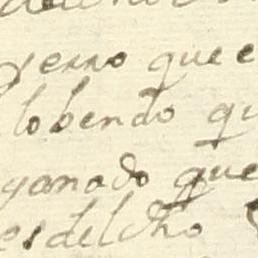 yerro que e
lo bendo qu
ganado que
es del dho